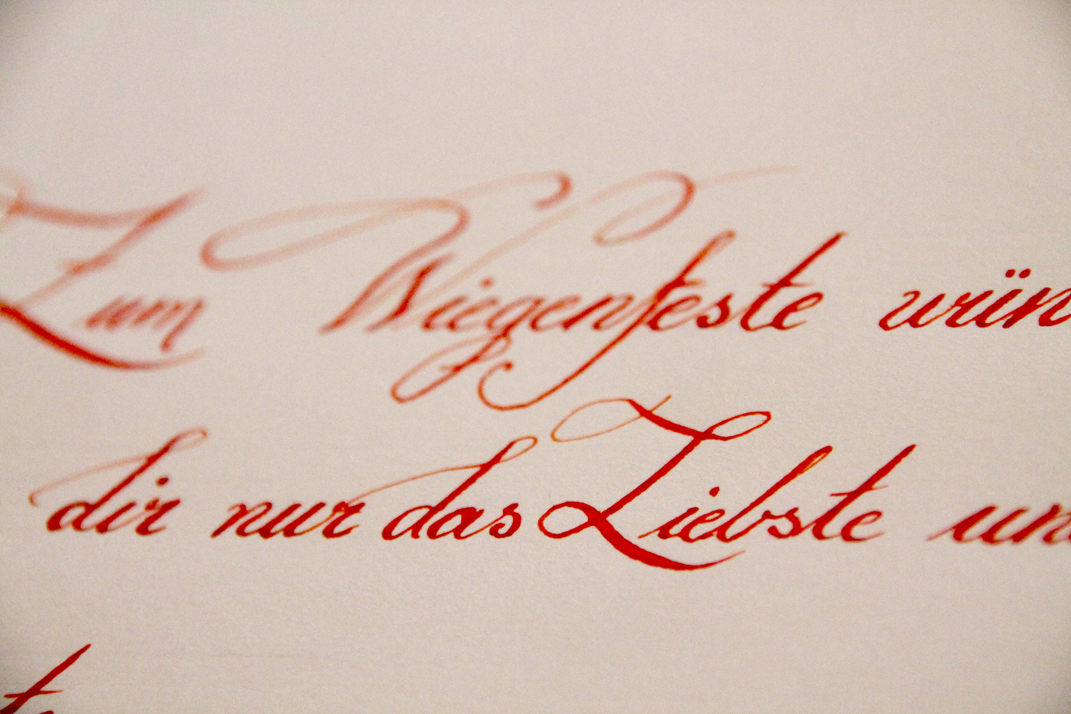 Zum Wiegenfeste wün
dir nur das Liebste un